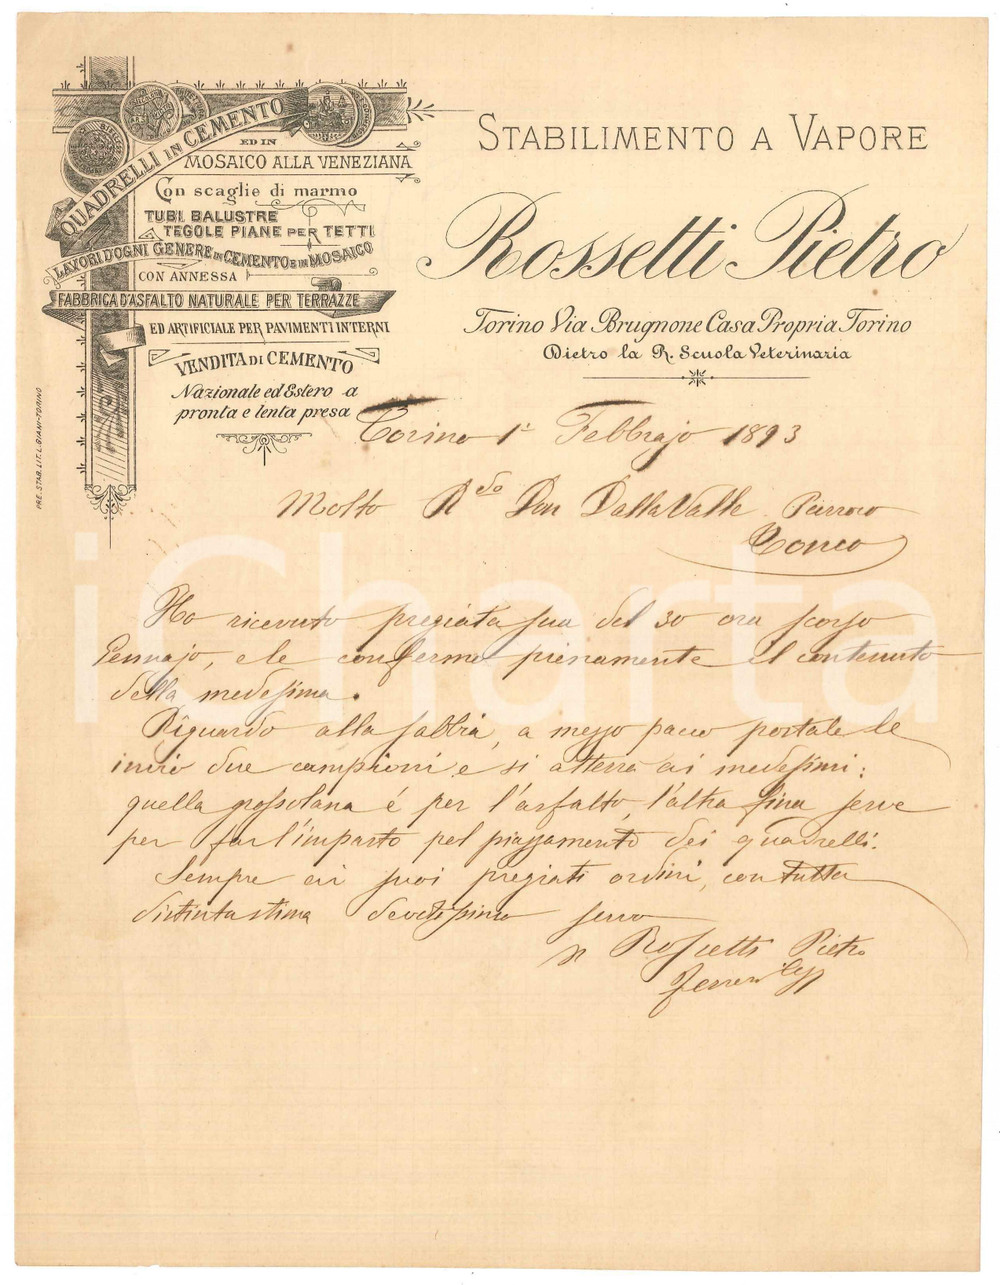 QUADRELLI IN CEMENTO
ED IN
MOSAICO ALLA VENEZIANA
Con scaglie di marmo
TUBI BALUSTRE
TEGOLE PIANE PER TETTI
LAVORI D'OGNI GENERE IN CEMENTO E IN MOSAICO
CON ANNESSA
FABBRICA D'ASFALTO NATURALE PER TERRAZZE
ED ARTIFICIALE PER PAVIMENTI INTERNI
VENDITA DI CEMENTO
Nazionale ed Estero a
pronta e lenta presa
PRE. STAB. LIT. L. GIANI-TORINO
STABILIMENTO A VAPORE
Rossetti Pietro
Torino Via Brugnone Casa Propria Torino
Dietro la R. Scuola Veterinaria
Torino 1° Febbrajo 1893
Molto Rdo Don Dalla Valle Parroco
Tonco
Ho ricevuto pregiata sua del 30 ora scorso
Gennajo, e le confermo pienamente il contenuto
della medesima.
Riguardo alla sabbia, a mezzo pacco postale le
invio due campioni e si atterrà ai medesimi:
quella grossolana é per l'asfalto, l'altra fina serve
per far l'impasto pel piazzamento dei quadrelli.
Sempre ai suoi pregiati ordini, con tutta
distinta stima devotissimo servo
Rossetti Pietro
iCharta